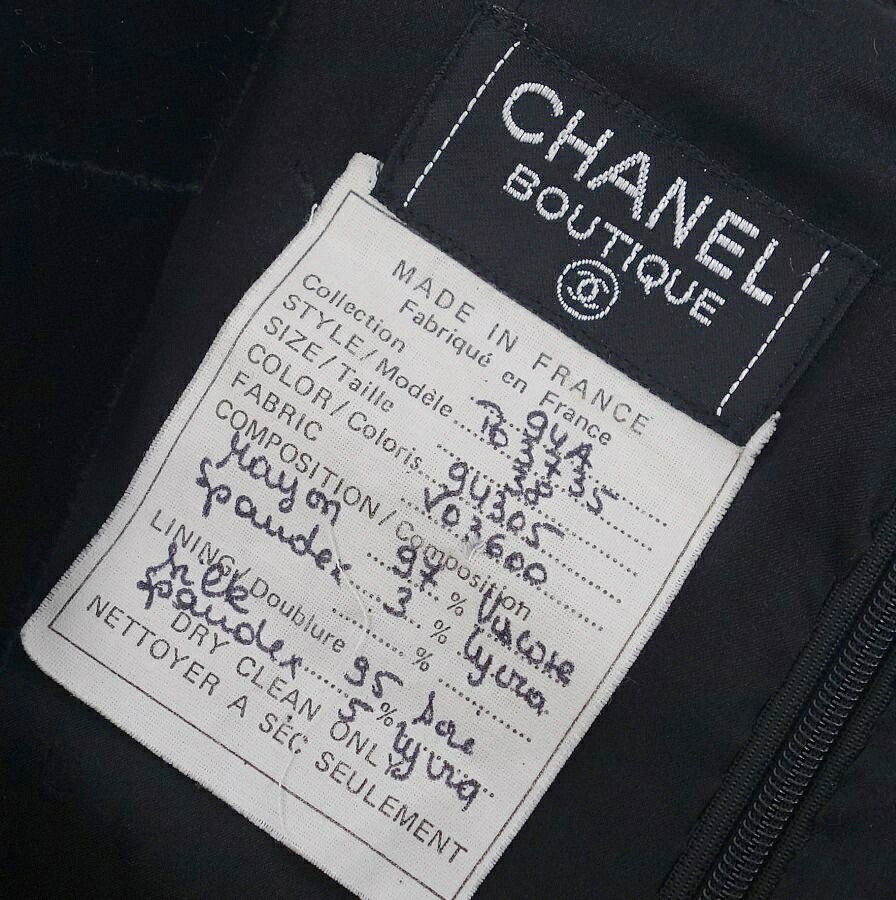 CHANEL
BOUTIQUE
MADE IN FRANCE
Fabriqué en France
Collection 94A
STYLE/Modèle Po 3735
SIZE/Taille 38
COLOR/Coloris 94305
FABRIC V03600
COMPOSITION/Composition
Rayon 97 % Viscose
Spandex 3 % lycra
%
LINING/Doublure
Silk 95 % Soie
Spandex 5 lycra
DRY CLEAN ONLY
NETTOYER A SÉC SEULEMENT